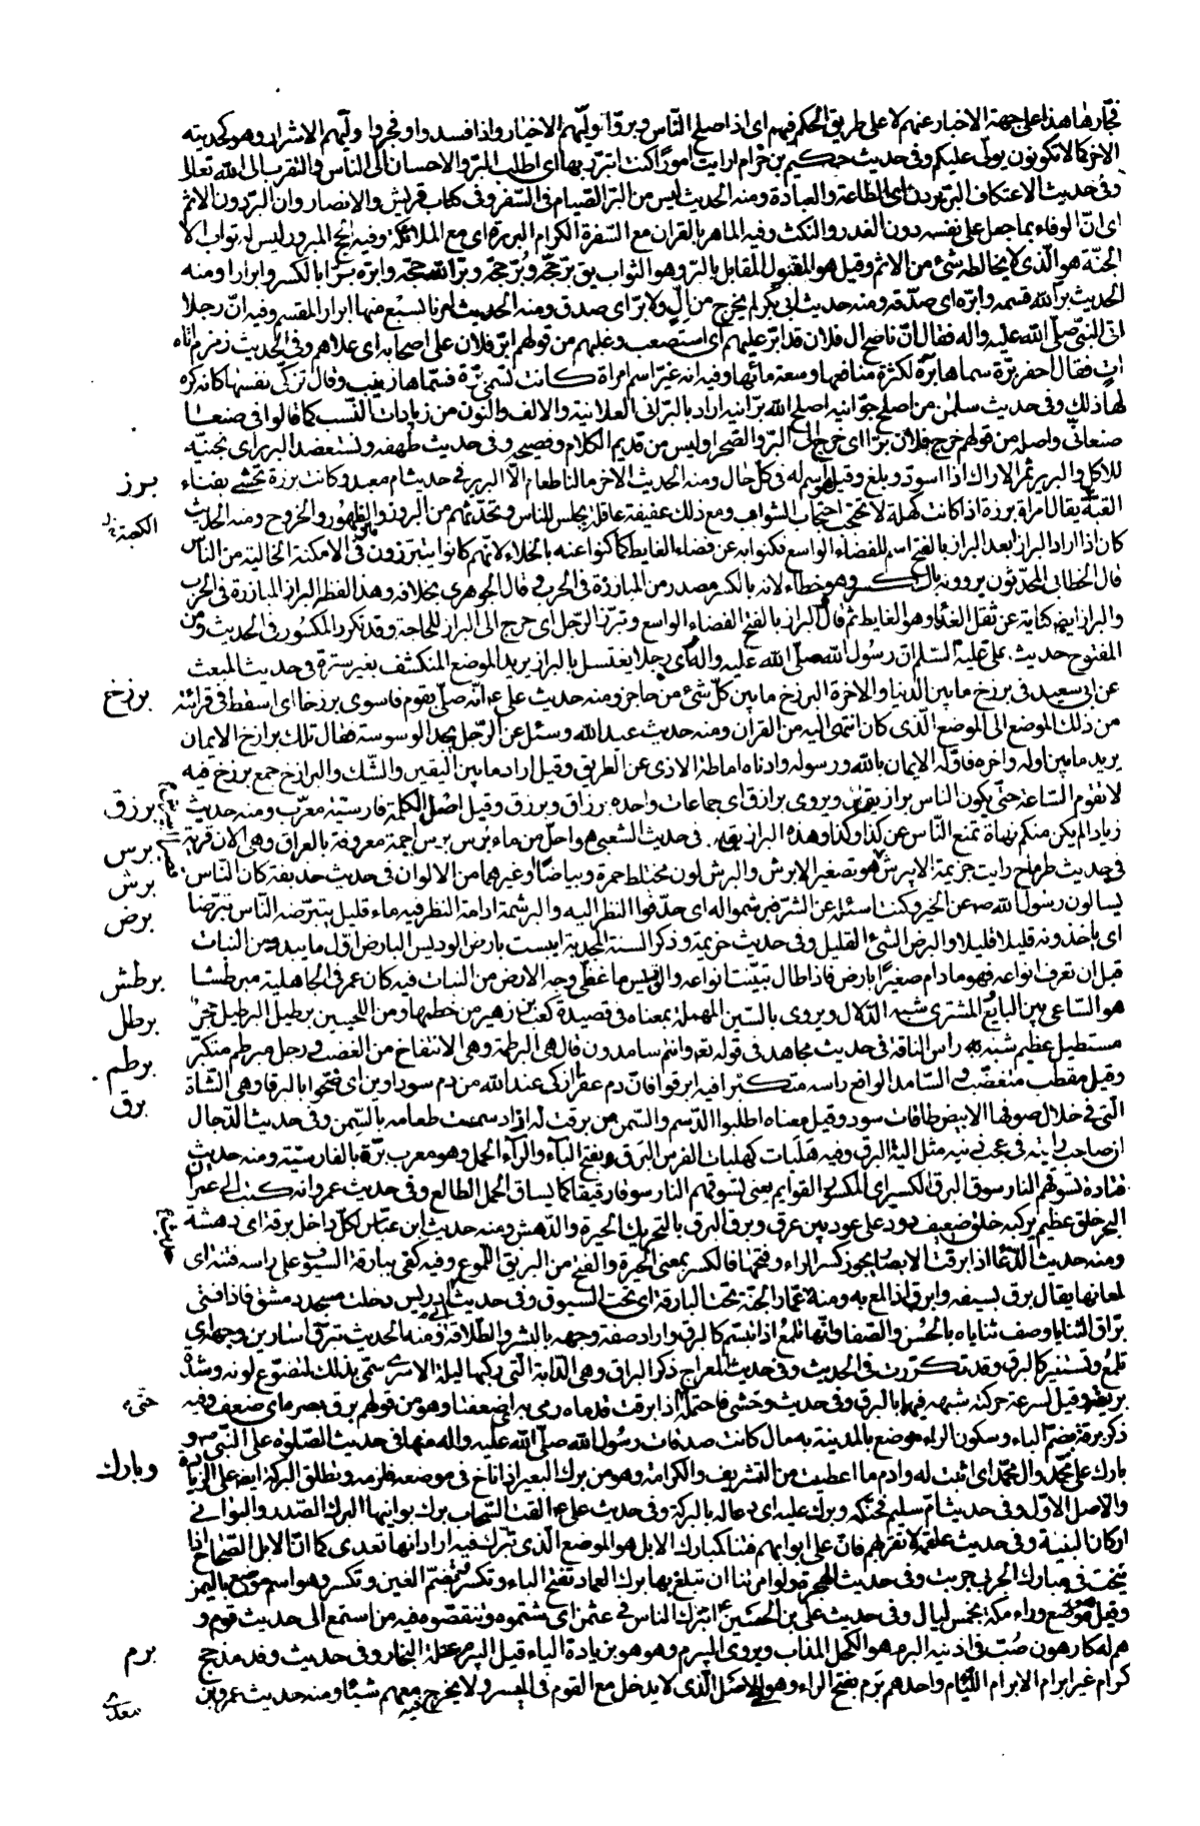 فجّارها هذا على جهة الاخبار عنهم لا على طريق الحكم فيهم اى اذا صلح النّاس وبرّوا وليّهم الاخيار واذا فسدوا وفجروا وليّهم الاشرار وهو كحديثه
الاخر كما تكونون يولّى عليكم وفى حديث حكيم بن حزام ارايت امورًا كنت اتبرّر بها اى اطلب البرّ والاحسان الى النّاس والتقرب الى الله تعالى
وفى حديث الاعتكاف البرّ تردن اى الطاعة والعبادة ومنه الحديث ليس من البرّ الصّيام فى السّفر وفى كتاب قريش والانصار وان البرّ دون الاثم
اى انّ الوفاء بما جعل على نفسه دون الغدر والنكث وفيه الماهر بالقران مع السّفرة الكرام البررة اى مع الملائكة وفيه الحج المبرور ليس له ثواب الا
الجنّة هو الّذى لا يخالطه شئ من الاثم وقيل هو المقبول المقابل بالبرّ وهو الثواب يق برّ حجّه وبُرّ حجّه وبرّ الله حجّه وابرّه برًّا بالكسر وابرارا ومنه
الحديث برّ الله قسمه وابرّه اى صدّقه ومنه حديث ابى بكر لم يخرج من الٍّ ولا برّ اى صدق ومنه الحديث امرنا بسبع منها ابرار المقسم وفيه انّ رجلا
اتى النبىّ صلّى الله عليه واله فقال انّ ناضح ال فلان قد ابرّ عليهم اى استصعب وغلبهم من قولهم ابرّ فلان على اصحابه اى علاهم وفى الحديث زمزم اتاه
اتٍ فقال احفر برّة سماها برّة لكثرة منافعها وسعة مائها وفيه انه غيّر اسم امراة كانت تسمّى برّة فسمّاها زينب وقال تزكّى نفسها كانه كره
لها ذلك وفى حديث سلمن من اصلح جوّانيه اصلح الله برّانيه اراد بالبرّانى العلانية والالف والنون من زيادات النّسب كما قالوا فى صنعا
صنعانىّ واصل من قولهم خرج فلان برًّا اى خرج الى البرّ والصّحرا وليس من قديم الكلام وفصيحه وفى حديث طهفه ونستعضد البرير اى نجنيه
للاكل والبرير ثمر الاراك اذا اسودّ وبلغ وقيل هو اسم له فى كلّ حال ومنه الحديث الاخر مالنا طعام الّا البرير فى حديث ام معبد وكانت برزة تحتبى بفناء
برز
القبّة يقال امراة برزة اذا كانت كهلة لا تحتجب احتجاب الشواب ومع ذلك عفيفة عاقلة تجلس للناس وتحدّثهم من البروز والظهور والخروج ومنه الحديث
كان اذا اراد البراز ابعد البراز بالفتح اسم للفضاء الواسع فكنوا به عن قضاء الغايط كما كنوا عنه بالخلاء لانّهم كانوا يتبرّزون فى الامكنة الخالية من الناس
قال الخطابى المحدّثون يروونه بالكسر وهو خطاء لانه بالكسر مصدر من المبارزة فى الحرب وقال الجوهرى بخلافه وهذا لفظه البراز المبارزة فى الحرب
والبراز ايضا كناية عن ثفل الغذاء وهو الغايط ثم قال البراز بالفتح الفضاء الواسع وتبرّز الرّجل اى خرج الى البراز للحاجة وقد تكرر المكسور فى الحديث ومن
المفتوح حديث على عليه السّلم ان رسول الله صلّى الله عليه واله راى رجلا يغتسل بالبراز يريد الموضع المنكشف بغير سترة وفى حديث المبعث
عن ابى سعيد فى برزخ ما بين الدنيا والاخرة البرزخ ما بين كلّ شئ من حاجز ومنه حديث على ع انّه صلّى بقوم فاسوى برزخا اى اسقط فى قرائته
برزخ
من ذلك الموضع الى الموضع الّذى كان انتهى اليه من القران ومنه حديث عبد الله وسئل عن الرّجل يجد الوسوسة فقال تلك برازخ الايمان
يريد ما بين اوله واخره فاوّله الايمان بالله ورسوله وادناه اماطة الاذى عن الطريق وقيل اراد ما بين اليقين والشّك والبرازخ جمع برزخ فيه
لا تقوم السّاعة حتّى يكون الناس برازيق ويروى برازق اى جماعات واحده برزاق وبرزق وقيل اصل الكلمة فارسيّة معرّب ومنه حديث
برزق
زياد الم يكن منكم نهاة تمنع النّاس عن كذا وكذا وهذه البرازيق فى حديث الشعبى هو احلّ من ماء برس برس اجمة معروفة بالعراق وهى الان قرية
برس
فى حديث طرماح رايت جزيمة الابيرش هو تصغير الابرش والبرش لون مختلط حمرة وبياضا وغيرهما من الالوان فى حديث حذيفة كان النّاس
برش
يسالون رسول الله ص عن الخير وكنت اسئله عن الشرّ فبرشموا له اى حدّقوا النظر اليه والبرشمة ادامة النظر فيه ماء قليل يتبرّضه النّاس تبرّضا
برض
اى ياخذونه قليلا قليلا والبرض الشئ القليل وفى حديث خزيمة وذكر السنة المجدبة ايبست بارض الوديس البارض اوّل ما يبدو من النبات
قبل ان تعرف انواعه فهو ما دام صغيرًا بارض فاذا طال تبيّنت انواعه والوديس ما غطّى وجه الارض من النبات فيه كان عمر فى الجاهلية مبرطشا
برطش
هو السّاعى بين البايع والمشترى شبه الدّلال ويروى بالسّين المهملة بمعناه فى قصيدة كعب بن زهير من خطمها ومن اللحيين برطيل البرطيل حجر
برطل
مستطيل عظيم شبه به راس الناقة فى حديث مجاهد فى قوله تع وانتم سامدون قال هى البرطمة وهى الانتفاخ من الغضب ورجل مبرطم متكبّر
برطم
وقيل مقطّب متغضّب والسّامد الرافع راسه متكبّرا فيه ابرقوا فانّ دم عفراء ازكى عند الله من دم سوداوين اى ضحّوا بالبرقا وهى الشّاة
برق
الّتى فى خلال صوفها الابيض طاقات سود وقيل معناه اطلبوا الدّسم والسّمن من برقت له اذا دسمت طعامه بالسّمن وفى حديث الدّجال
ان صاحب رايته فى عجب ذنبه مثل الية البرق وفيه هلبات كهلبات الفرس البرق بفتح الباء والرّاء الحمل وهو معرب برّة بالفارسيّة ومنه حديث
قتادة تسوقهم النار سوق البرق الكسير اى المكسور القوايم يعنى تسوقهم النار سوقا رفيقا كما يساق الحمل الظالع وفى حديث عمرو انه كتب الى عمر ان
البحر خلق عظيم يركبه خلق ضعيف دود على عود بين غرق وبرق البرق بالتحريك الحيرة والدّهش ومنه حديث ابن عبّاس لكلّ داخل برقة اى دهشة
ومنه حديث الدّعا اذا برقت الابصار يجوز كسر الراء وفتحها فالكسر بمعنى الحيرة والفتح من البريق اللّموع وفيه كفى ببارقة السّيوف على راسه فتنة اى
لمعانها يقال برق بسيفه وابرق اذا لمع به ومنه عمّار الجنّة تحت البارقة اى تحت السيوف وفى حديث ابى ادريس دخلت مسجد دمشق فاذا فتى
برّاق الثنايا وصف ثناياه بالحُسن والصّفا وانّها تلمع اذا تبسّم كالبرق واراد صفة وجهه بالبشر والطّلاقة ومنه الحديث تبرق اسارير وجهه اى
تلمع وتستنير كالبرق وقد تكررت فى الحديث وفى حديث المعراج ذكر البراق وهى الدّابة الّتى ركبها ليلة الاسرى سمّى بذلك لنصوع لونه وشدّة
بريقه وقيل لسرعة حركته شبهه فيهما بالبرق وفى حديث وحشى فاحتمله اذا برقت قدماه رمى به اى ضعفتا وهو من قولهم برق بصره اى ضعف وفيه
ذكر برقة بضمّ الباء وسكون الراء موضع بالمدينة به مال كانت صدقات رسول الله صلّى الله عليه واله منها فى حديث الصّلوة على النّبى ص و
بارك على محمّد وال محمّد اى اثبت له وادم ما اعطيت من التشريف والكرامة وهو من برك البعير اذا ناخ فى موضعه فلزمه وتطلق البركة ايضا على الزيادة
وبارك
والاصل الاوّل وفى حديث امّ سليم فحنّكه وبرّك عليه اى دعا له بالبركة وفى حديث على ع القت السّحاب برك بوانيها البرك الصّدر والبوانى
اركان البنية وفى حديث علقمة لا تقربهم فان على ابوابهم فتنا كمبارك الابل هو الموضع الّذى تبرك فيه اراد انها تعدى كما انّ الابل الصّحاح اذا
انيخت فى مبارك الجربى جربت وفى حديث الهجرة ولو امرتنا ان نبلغ بها برك الغماد تفتح الباء وتكسر وتضمّ الغين وتكسر وهو اسم موضع باليمن
وقيل هو موضع وراء مكّة بخمس ليال وفى حديث على بن الحسين ع ابترك الناس فى عثمن اى شتموه وتنقّصوه فيه من استمع الى حديث قوم و
هم له كارهون صُبّ فى اذنيه البرم هو الكحل المذاب ويروى البيرم وهو هو بزيادة الياء قيل البيرم عتلة النجار وفى حديث وفد مذحج
برم
كرام غير ابرام الابرام اللّئام واحدهم برم بفتح الراء وهو فى الاصل الّذى لا يدخل مع القوم فى الميسر ولا يخرج معهم فيه شيئا ومنه حديث عمرو بن
معد